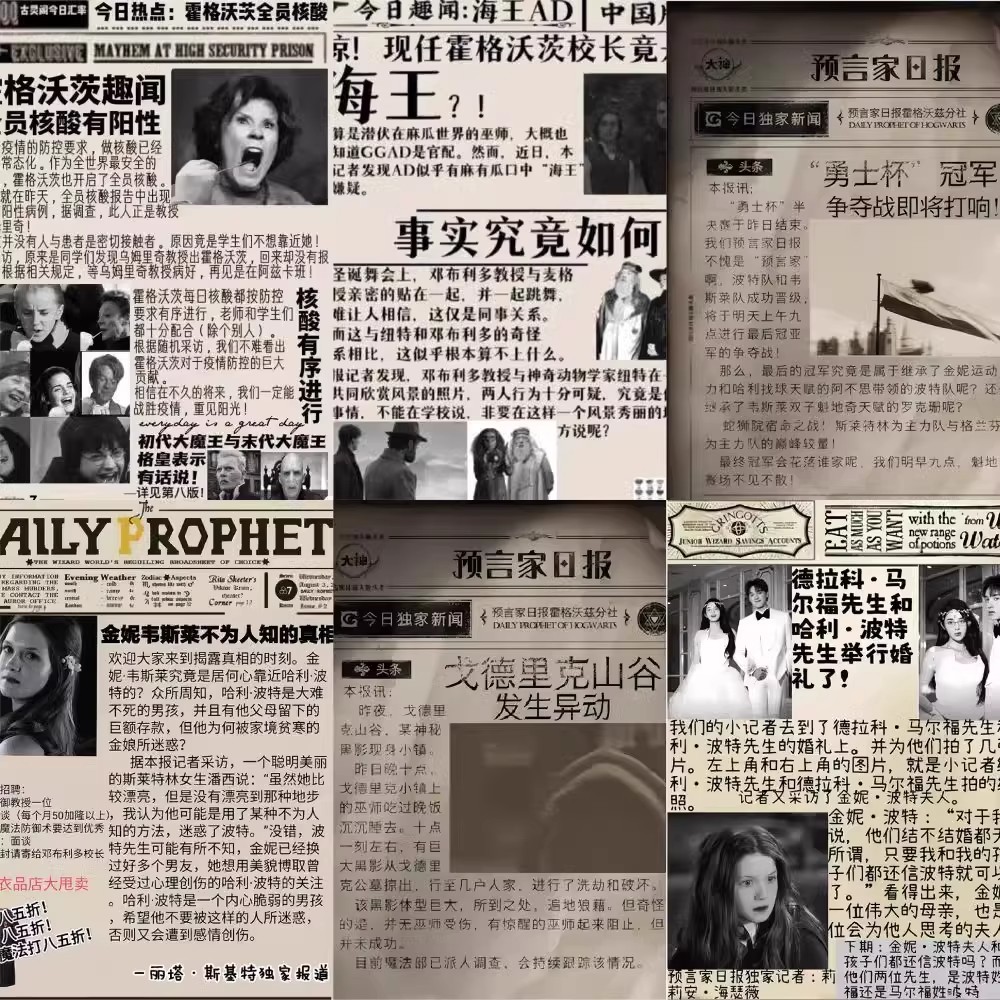 古灵阁今日汇率
今日热点：霍格沃茨全员核酸
EXCLUSIVE
MAYHEM AT HIGH SECURITY PRISON
格沃茨趣闻
员核酸有阳性
疫情的防控要求，做核酸已经
常态化。作为全世界最安全的
，霍格沃茨也开启了全员核酸。
就在昨天，全员核酸报告中出现
阳性病例，据调查，此人正是教授
里奇！
并没有人与患者是密切接触者。原因竟是学生们不想靠近她！
访，原来是同学们发现乌姆里奇教授出霍格沃茨，回来却没有报
根据相关规定，等乌姆里奇教授病好，再见是在阿兹卡班！
霍格沃茨每日核酸都按防控
要求有序进行，老师和学生们
都十分配合（除个别人）。
根据随机采访，我们不难看出
霍格沃茨对于疫情防控的巨大
贡献。
相信在不久的将来，我们一定能
战胜疫情，重见阳光！
核酸有序进行
everyday is a great day
初代大魔王与末代大魔王
格皇表示
有话说！
详见第八版！
今日趣闻：海王AD
中国
惊！现任霍格沃茨校长竟是
海王？！
算是潜伏在麻瓜世界的巫师，大概也
知道GGAD是官配。然而，近日，本
记者发现AD似乎有麻有瓜口中“海王”
嫌疑。
事实究竟如何
圣诞舞会上，邓布利多教授与麦格
授亲密的贴在一起，并一起跳舞，
难让人相信，这仅是同事关系。
而这与纽特和邓布利多的奇怪
系相比，这似乎根本算不上什么。
报记者发现，邓布利多教授与神奇动物学家纽特在一
共同欣赏风景的照片，两人行为十分可疑，究竟是
事情，不能在学校说，非要在这样一个风景秀丽的
方说呢？
大神
预言家日报
今日独家新闻
预言家日报霍格沃兹分社
DAILY PROPHET OF HOGWARTS
头条
“勇士杯”冠军
争夺战即将打响！
本报讯：
“勇士杯”半
决赛于昨日结束。
我们预言家日报
不愧是“预言家”
啊，波特队和韦
斯莱队成功晋级，
将于明天上午九
点进行最后冠亚
军的争夺战！
那么，最后的冠军究竟是属于继承了金妮运动
力和哈利找球天赋的阿不思带领的波特队呢？还
继承了韦斯莱双子魁地奇天赋的罗克珊呢？
蛇狮院宿命之战！斯莱特林为主力队与格兰芬
为主力队的巅峰较量！
最终冠军会花落谁家呢，我们明早九点，魁地
赛场不见不散！
The
AILY PROPHET
THE WIZARD WORLD'S BEGUILING BROADSHEET OF CHOICE
Evening Weather
Zodiac Aspects
Rita Skeeter's
Corner
金妮韦斯莱不为人知的真相
欢迎大家来到揭露真相的时刻。金
妮·韦斯莱究竟是居何心靠近哈利·波
特的？众所周知，哈利·波特是大难
不死的男孩，并且有他父母留下的
巨额存款，但他为何被家境贫寒的
金娘所迷惑？
据本报记者采访，一个聪明美丽
的斯莱特林女生潘西说：“虽然她比
较漂亮，但是没有漂亮到那种地步
，我认为他可能是用了某种不为人
知的方法，迷惑了波特。“没错，波
特先生可能有所不知，金妮已经换
过好多个男友，她想用美貌博取曾
经受过心理创伤的哈利·波特的关注
。哈利·波特是一个内心脆弱的男孩
，希望他不要被这样的人所迷惑，
否则又会遭到感情创伤。
—丽塔·斯基特独家报道
招聘：
御教授一位
谈（每个月50加隆以上），
魔法防御术要达到优秀
：面谈
封请寄给邓布利多校长
衣品店大甩卖
八五折！
八五折！
魔法打八五折！
大神
预言家日报
今日独家新闻
预言家日报霍格沃兹分社
DAILY PROPHET OF HOGWARTS
头条
戈德里克山谷
发生异动
本报讯：
昨夜，戈德里
克山谷，某神秘
黑影现身小镇。
昨日晚十点，
戈德里克小镇上
的巫师吃过晚饭
沉沉睡去。十点
一刻左右，有巨
大黑影从戈德里
克公墓掠出，行至几户人家，进行了洗劫和破坏。
该黑影体型巨大，所到之处，遍地狼藉。但奇怪
的是，并无巫师受伤，有惊醒的巫师起来阻止，但
并未成功。
目前魔法部已派人调查，会持续跟踪该情况。
GRINGOTTS
JUNIOR WIZARD SAVINGS ACCOUNTS
EAT AS MUCH AS YOU WANT
with the
new range
of potions
from
德拉科·马
尔福先生和
哈利·波特
先生举行婚
礼了！
我们的小记者去到了德拉科·马尔福先生
利·波特先生的婚礼上。并为他们拍了几
片。左上角和右上角的图片，就是小记者
利·波特先生和德拉科·马尔福先生拍的
照。
记者又采访了金妮·波特夫人。
金妮·波特：“对于我
说，他们结不结婚都
所谓，只要我和我的孩
子们都还信波特就可以
了。”看得出来，金妮
一位伟大的母亲，也是
位会为他人思考的夫人
下期：金妮·波特夫人和
孩子们都还信波特吗？而
他们两位先生，是波特姓
福还是马尔福姓波特
预言家日报独家记者：莉
莉安·海瑟薇